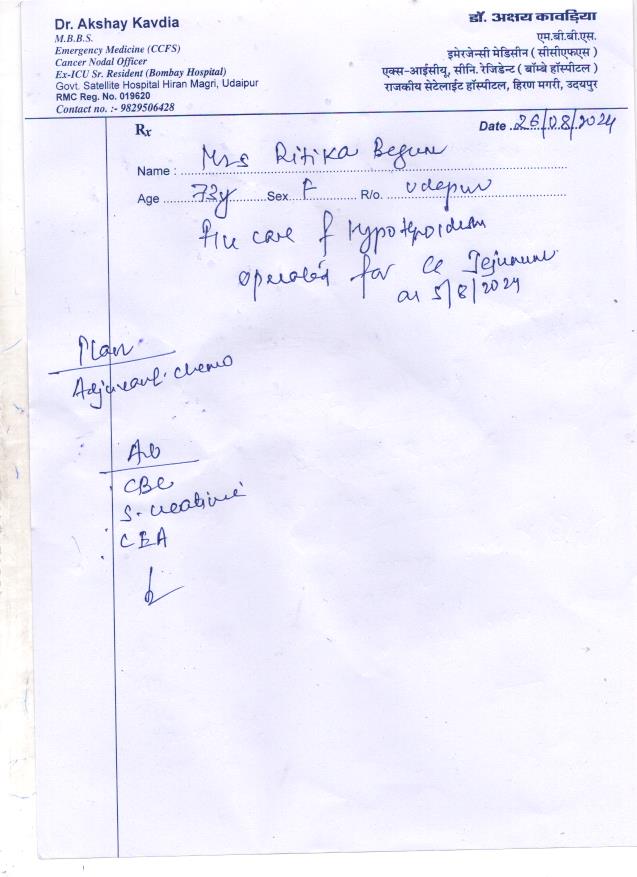 Dr. Akshay Kavdia
M.B.B.S.
Emergency Medicine (CCFS)
Cancer Nodal Officer
Ex-ICU Sr. Resident (Bombay Hospital)
Govt. Satellite Hospital Hiran Magri, Udaipur
RMC Reg. No. 019620
Contact no. :- 9829506428
डॉ. अक्षय कावड़िया
एम.बी.बी.एस.
इमेरजेन्सी मेडिसीन ( सीसीएफएस )
एक्स-आईसीयू, सीनि. रेजिडेन्ट ( बॉम्बे हॉस्पीटल )
राजकीय सेटेलाईट हॉस्पीटल, हिरण मगरी, उदयपुर
Rx
Date 26/08/2024
Name : Mrs Ritika Begum
Age 73y Sex F R/o. Udepur
care of
operated for Ca Jejunum
on 5/8/2024
Plan
Adjuvant. chemo
CBC
S. creatinine
CEA